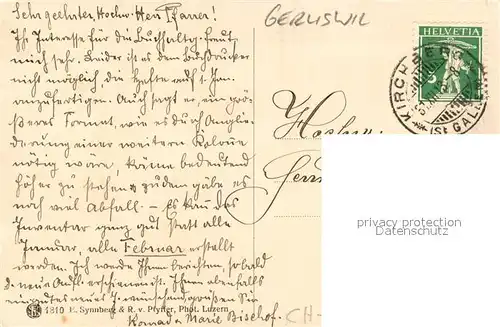 Sehr geehrter, Hochw. Herr Pfarrer!
Ihr Interesse für die Buchhaltg. freut
mich sehr. Leider ist es dem Buchdrucker
nicht möglich, die Hefte auf 1. Jan.
anzufertigen. Auch sagt er, ein grös-
seres Format, wie es durch Anglie-
derung einer weitern Kolonne
nötig wäre, käme bedeutend
höher zu stehen & zudem gäbe es
noch viel Abfall. – Es kann das
Inventar ganz gut statt alle
Januar, alle Februar erstellt
werden. Ich werde Ihnen berichten, sobald
d. neue Aufl. erschienen ist. Ihnen ebenfalls
ein gutes neues J. wünschend grüßen Sie
Konrad & Marie Bischof.
GERLISWIL
HELVETIA
5
KIRCHBERG
(ST. GALLEN)
Hochw.
Herrn
privacy protection
1810 E. Synnberg & R. v. Pfyffer, Phot. Luzern.
CH-